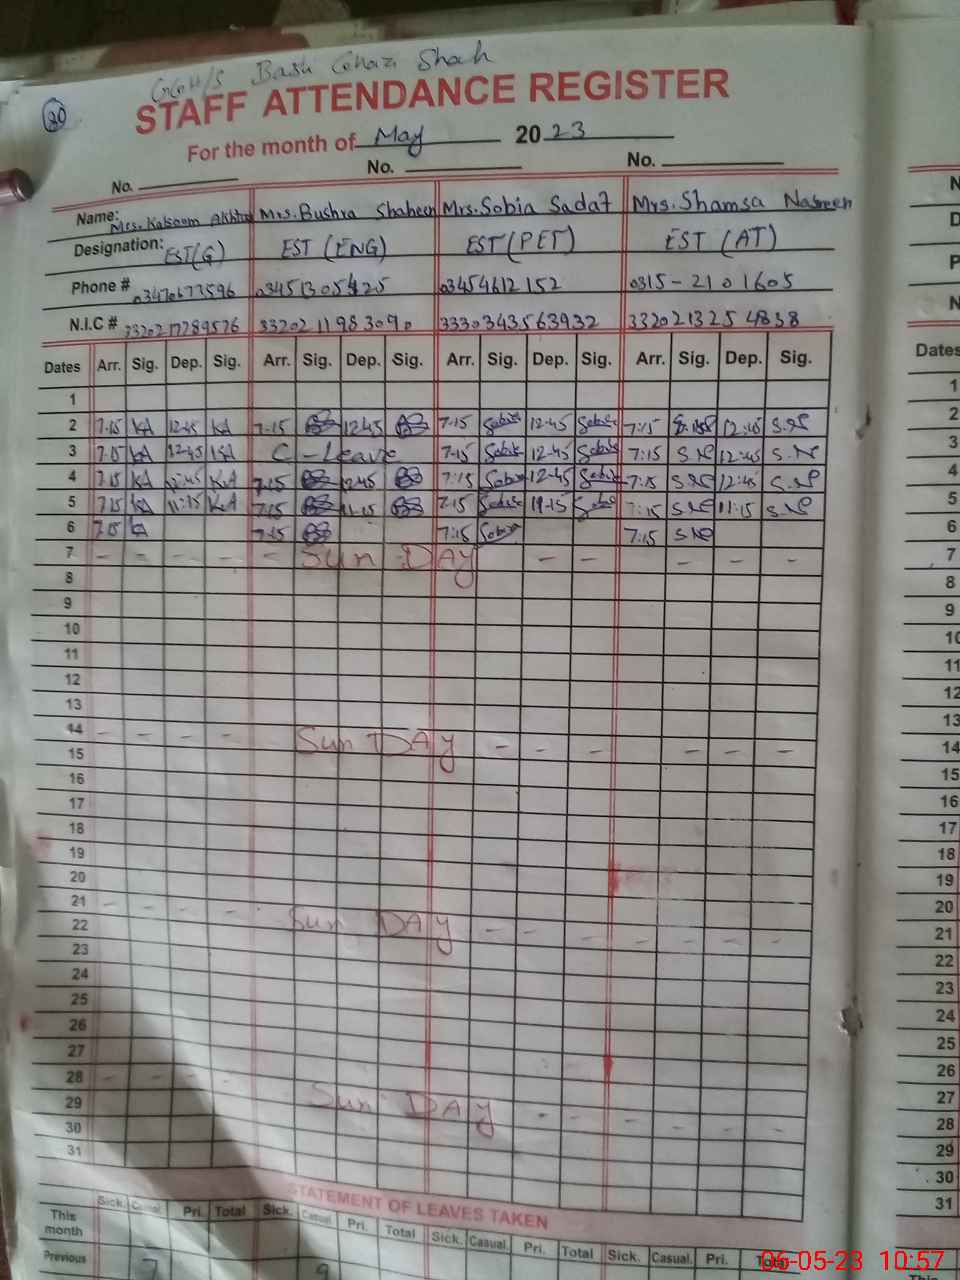 GGH/S Bash Ghazi Shah
20
STAFF ATTENDANCE REGISTER
For the month of May 2023
No. No. No.
Name: Mrs. Kalsoom Akhtar Mrs. Bushra Shaheen Mrs. Sobia Sadat Mrs. Shamsa Nasreen
Designation: EST(G) EST (ENG) EST (PET) EST (AT)
Phone # 03470673596 03451305425 03454612152 0315-2101605
N.I.C # 3320217289576 3320211983090 3330343563932 3320213254838
Dates Arr. Sig. Dep. Sig. Arr. Sig. Dep. Sig. Arr. Sig. Dep. Sig. Arr. Sig. Dep. Sig.
1
2 7.15 KA 12.45 KA 7.15 12.45 7.15 Sobia 12.45 Sobia 7:15 12:45 S.N
3 7.15 KA 12.45 KA C-Leave 7.15 Sobia 12.45 Sobia 7:15 S.N 12:45 S.N
4 7.15 KA 12:45 KA 7.15 12.45 7.15 Sobia 12.45 Sobia 7:15 S.N 12:45 S.N
5 7.15 KA 11:15 KA 7.15 11.15 7.15 Sobia 11.15 Sobia 7:15 S.N 11:15 S.N
6 7.15 7.15 7:15 Sobia 7:15 S.N
7 - - - - - Sun DAY - - - - -
8
9
10
11
12
13
14 - - - - Sun DAY - - - - - -
15
16
17
18
19
20
21 - - - - Sun DAY - - - - - -
22
23
24
25
26
27
28 - - - - Sun DAY - - - - - -
29
30
31
STATEMENT OF LEAVES TAKEN
Sick. Casual. Pri. Total Sick. Casual. Pri. Total Sick. Casual. Pri. Total Sick. Casual. Pri. Total
This month
Previous 7 9
Dates
1
2
3
4
5
6
7
8
9
10
11
12
13
14
15
16
17
18
19
20
21
22
23
24
25
26
27
28
29
30
31
This
06-05-23 10:57